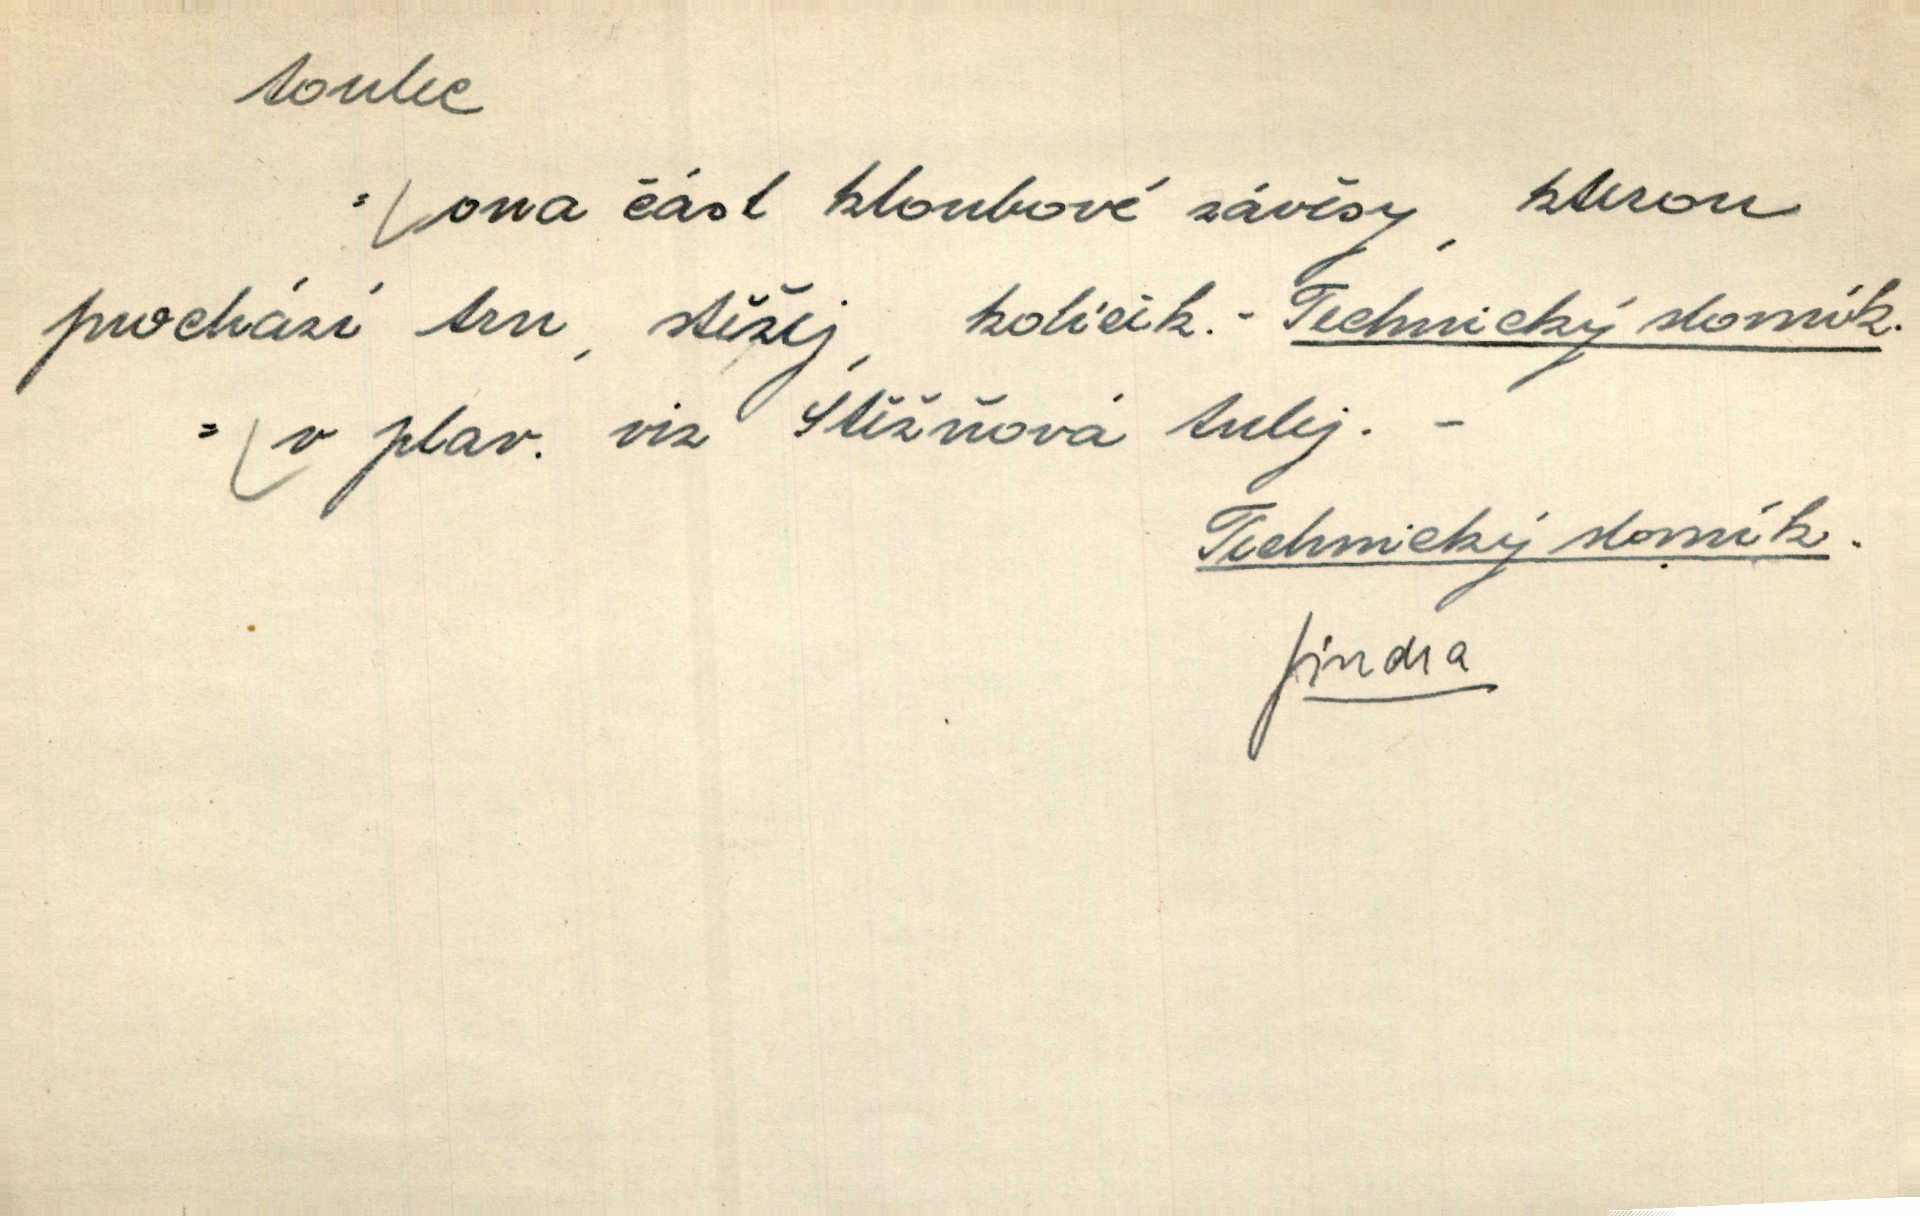 toulec
= ona část kloubové závěsy, kterou
prochází trn, stěžej, kolíček. - Technický slovník.
= v plav. viz Stěžňová tulej. -
Technický slovník.
Jindra